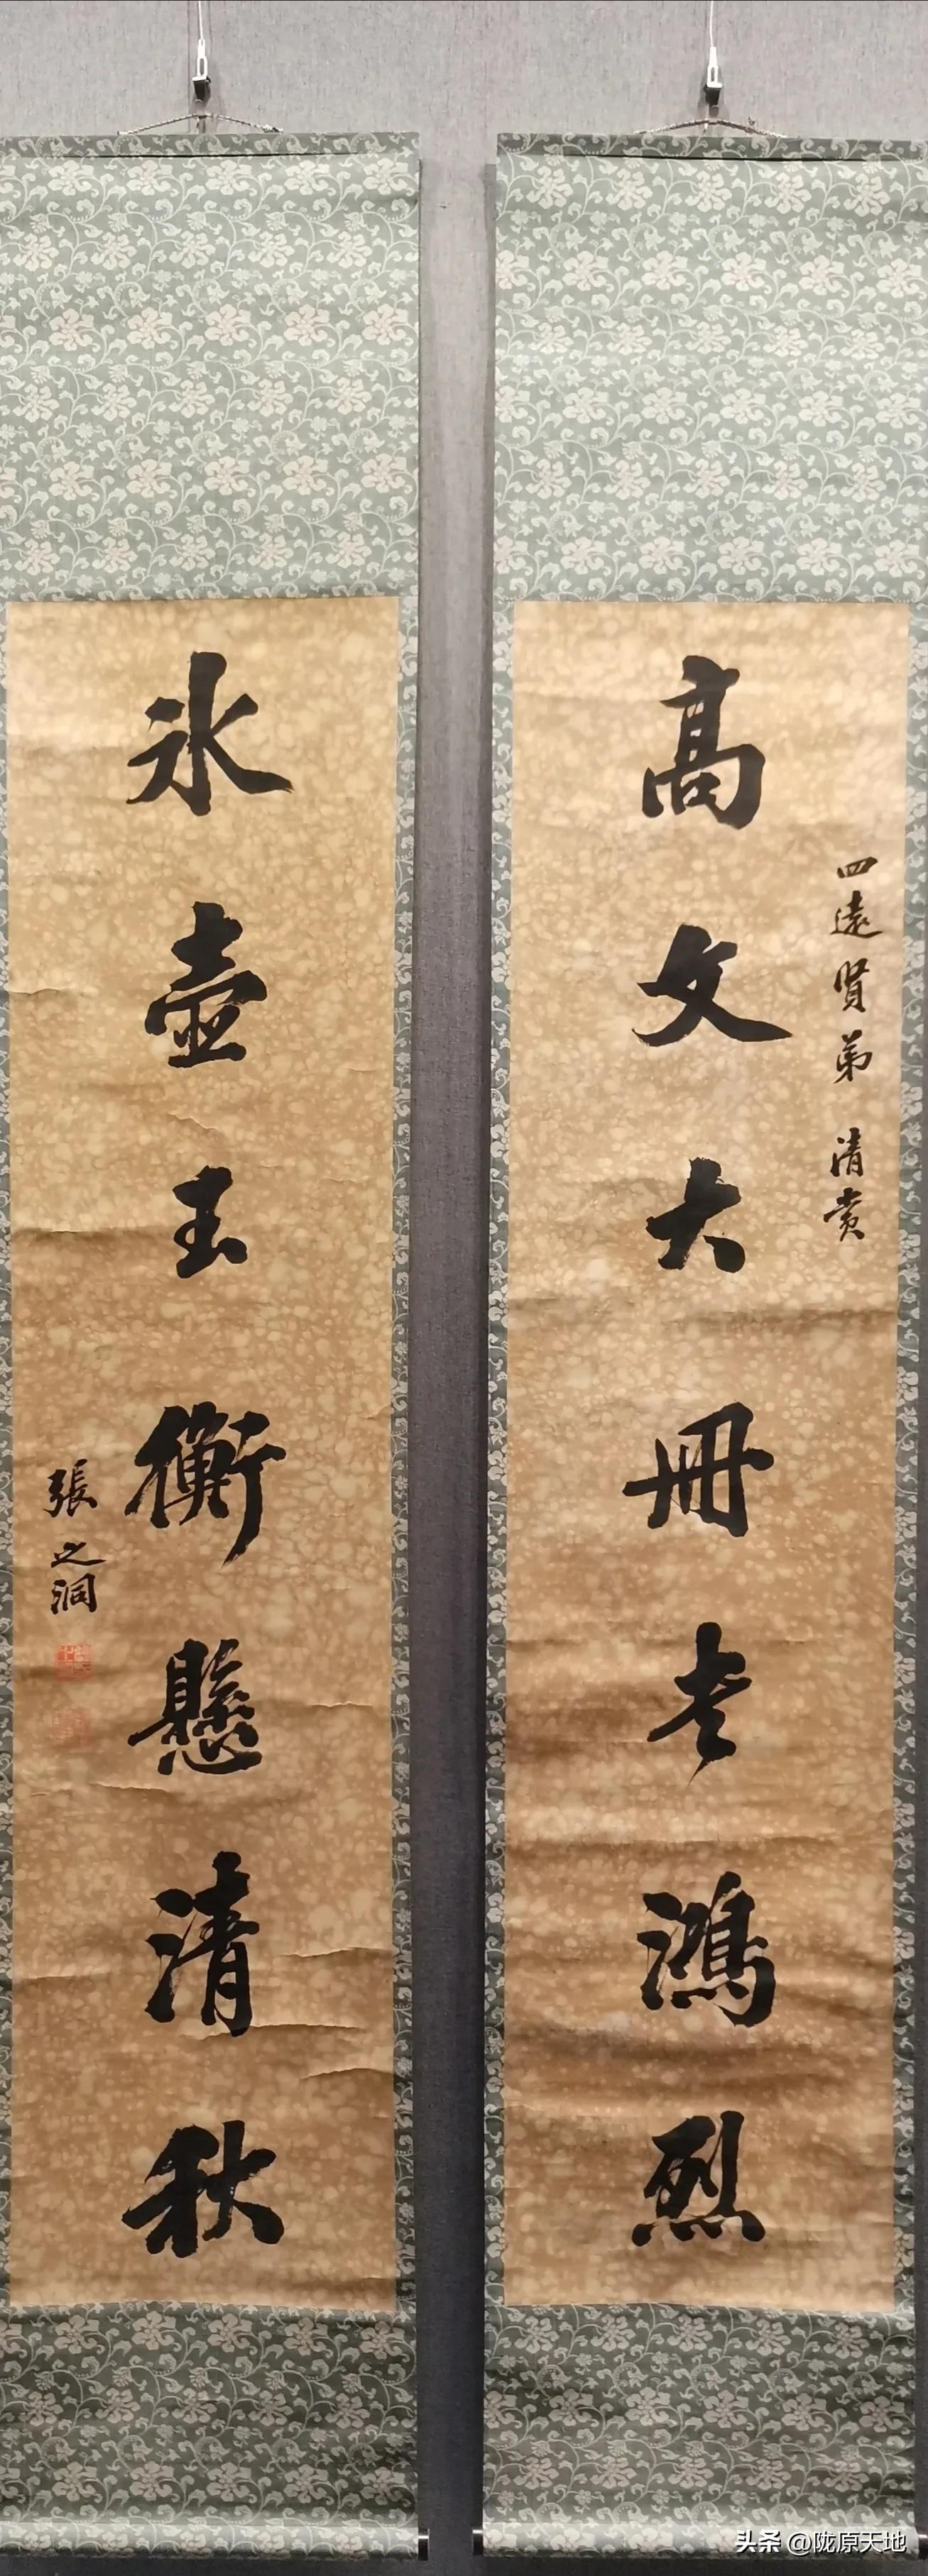 高文大冊考鴻烈
四遠賢弟 清賞
氷壺玉衡懸清秋
張之洞
头条 @陇原天地